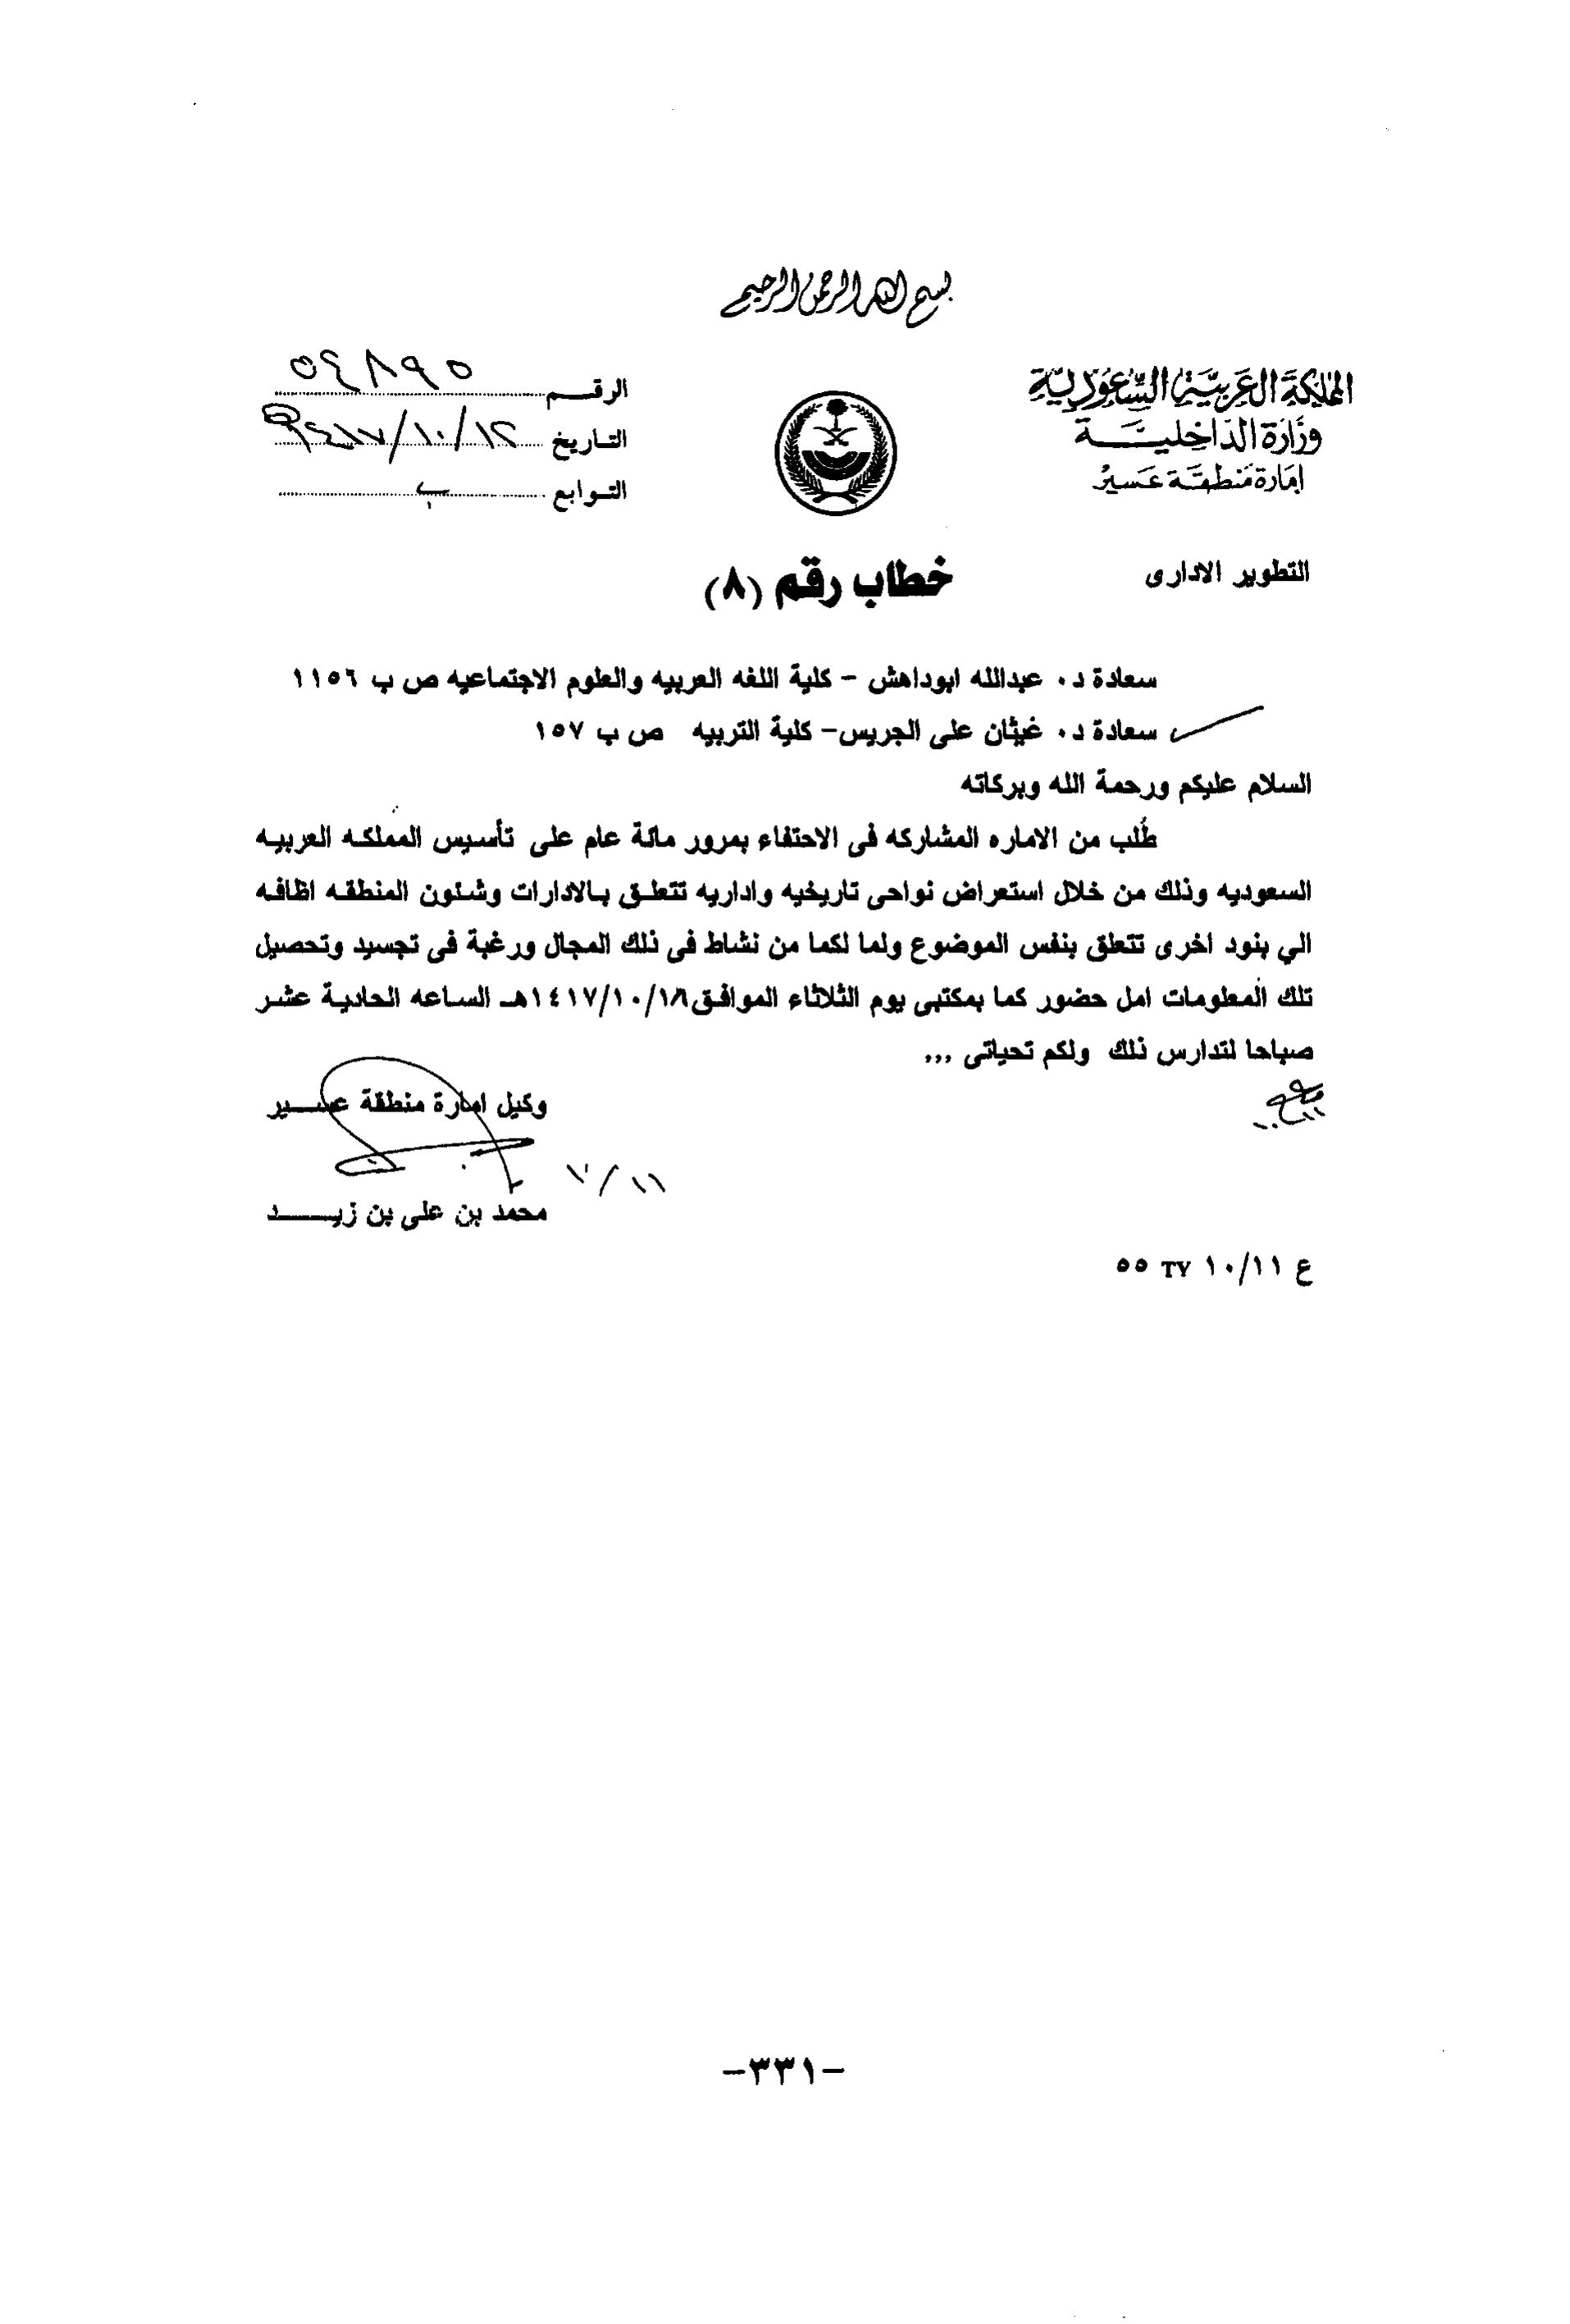 بسم الله الرحمن الرحيم
المملكة العربية السعودية
وزارة الداخلية
إمارة منطقة عسير
الرقم ٥٤٨٩٥
التاريخ ١٤١٧/١٠/١٢هـ
التوابع
التطوير الادارى
خطاب رقم (٨)
سعادة د. عبدالله ابوداهش - كلية اللغه العربيه والعلوم الاجتماعيه ص ب ١١٥٦
سعادة د. غيثان على الجريس- كلية التربيه ص ب ١٥٧
السلام عليكم ورحمة الله وبركاته
طُلب من الاماره المشاركه فى الاحتفاء بمرور مائة عام على تأسيس المملكه العربيه
السعوديه وذلك من خلال استعراض نواحى تاريخيه واداريه تتعلق بالادارات وشئون المنطقه اظافه
الي بنود اخرى تتعلق بنفس الموضوع ولما لكما من نشاط فى ذلك المجال ورغبة فى تجسيد وتحصيل
تلك المعلومات امل حضور كما بمكتبى يوم الثلاثاء الموافق ١٤١٧/١٠/١٦هـ الساعه الحادية عشر
صباحا لتدارس ذلك ولكم تحياتى ,,,
وكيل امارة منطقة عسير
١٠/١١
محمد بن على بن زيد
ع ١٠/١١ TY ٥٥
-٣٣١-